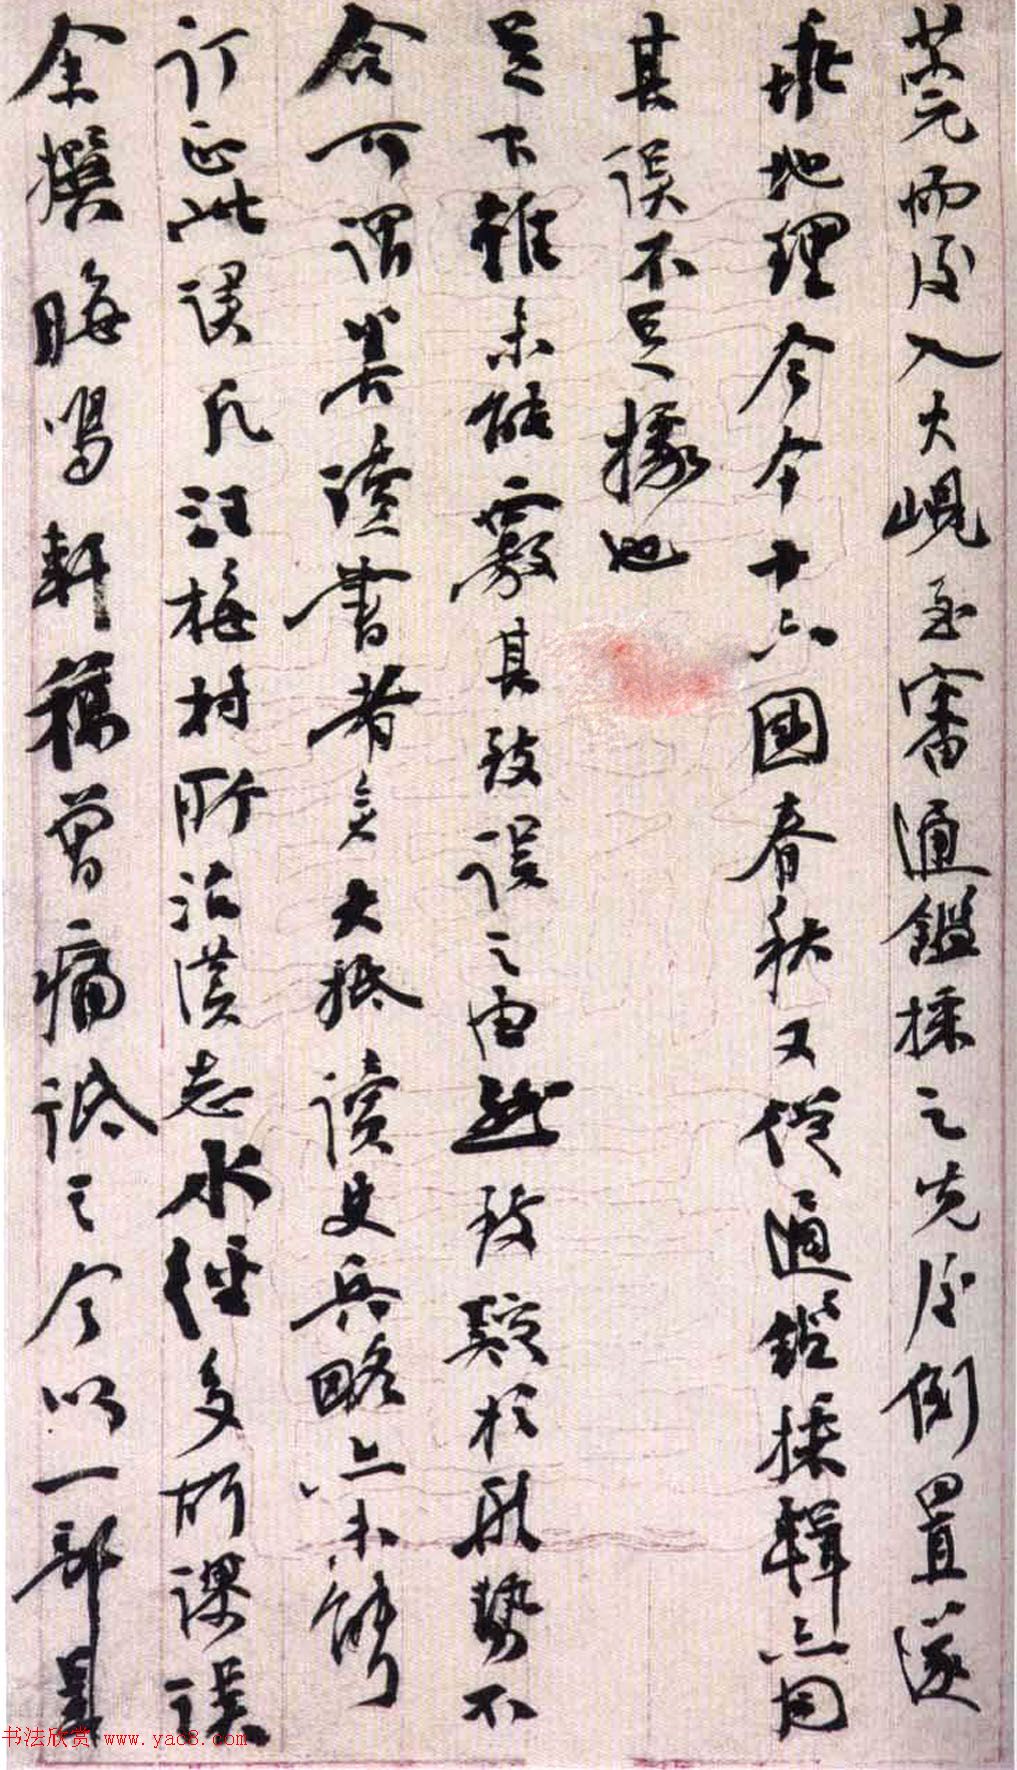 莞而後入大峴至審通鑑採之先後倒置遂
乖地理今本十六國春秋又從通鑑採輯亦同
其誤不足據也
足下雖未能覈其致誤之由然致疑於形勢不
合可謂善讀書者矣大抵讀史兵略亦未能
訂正此誤凡汪梅村所治漢志水經多所課誤
余撰晦鳴軒稿曾痛詆之今以一部
书法欣赏 www.yac8.com